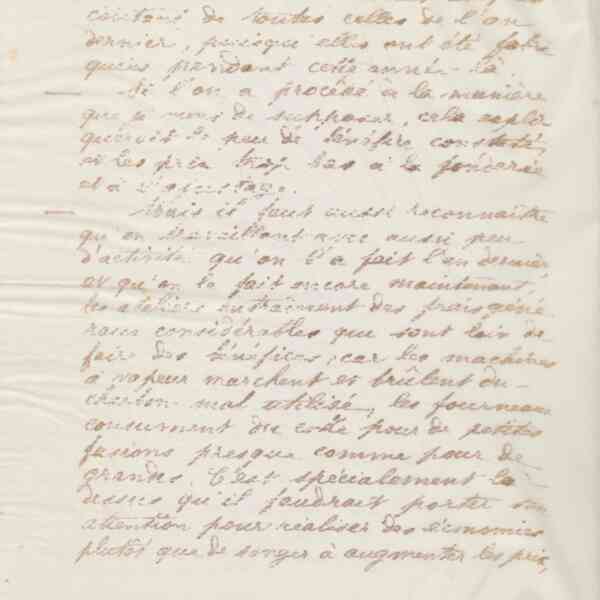 de toutes celles de l'an
dernier, puisqu'elles ont été fabri
quées pendant cette année-là.
Si l'on a procédé à la manière
que je viens de supposer, cela expli
querait le peu de bénéfice constaté,
et les prix trop bas à la fonderie
et à l'ajustage.
Mais il faut aussi reconnaître
qu'en travaillant avec aussi peu
d'activité qu'on l'a fait l'an dernier
et qu'on le fait encore maintenant,
les ateliers entraînent des frais géné
raux considérables qui sont loin de
faire des bénéfices, car les machines
à vapeur marchent et brûlent du
charbon mal utilisé, les fourneaux
consument du coke pour de petites
fusions presque comme pour de
grandes. C'est spécialement là
dessus qu'il faudrait porter son
attention pour réaliser des économies
plutôt que de songer à augmenter les prix,